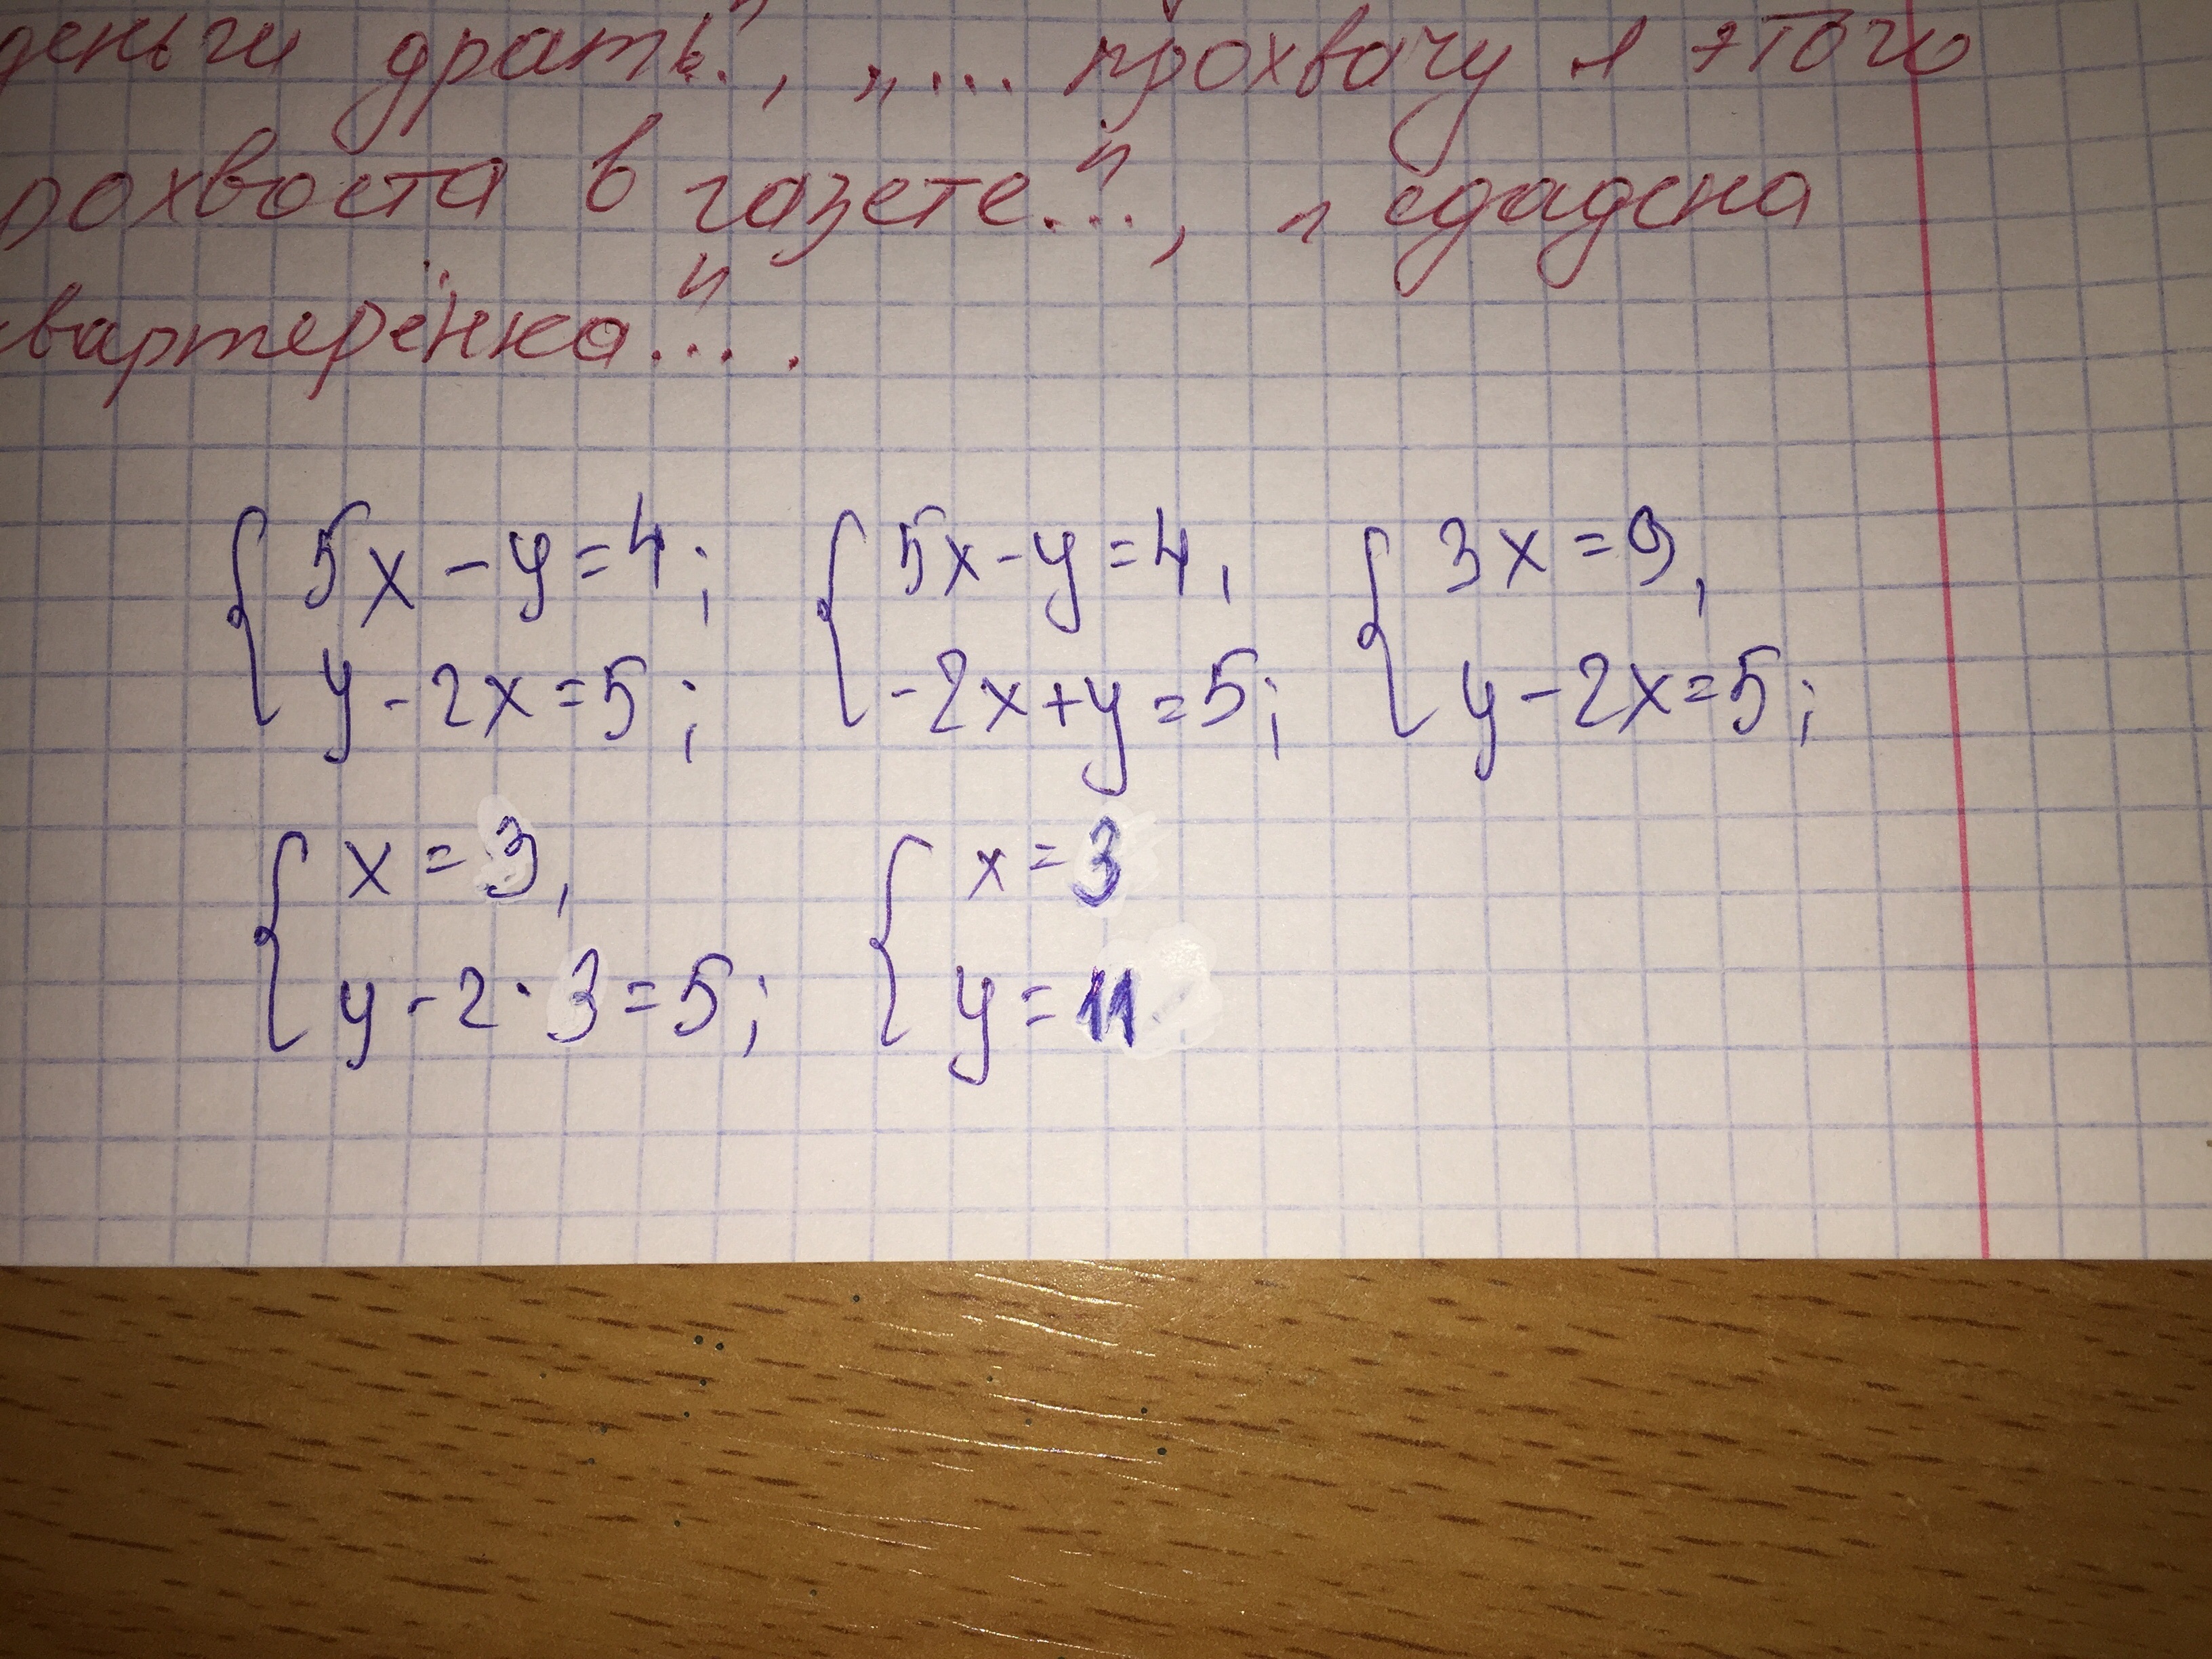 деньги драть", „... прохвачу я этого
рохвоста в газете...", „ едадена
вартерёнка...".
{ 5x - y = 4; { 5x - y = 4, { 3x = 9,
y - 2x = 5; -2x + y = 5; y - 2x = 5;
{ x = 3, { x = 3
y - 2 · 3 = 5; y = 11